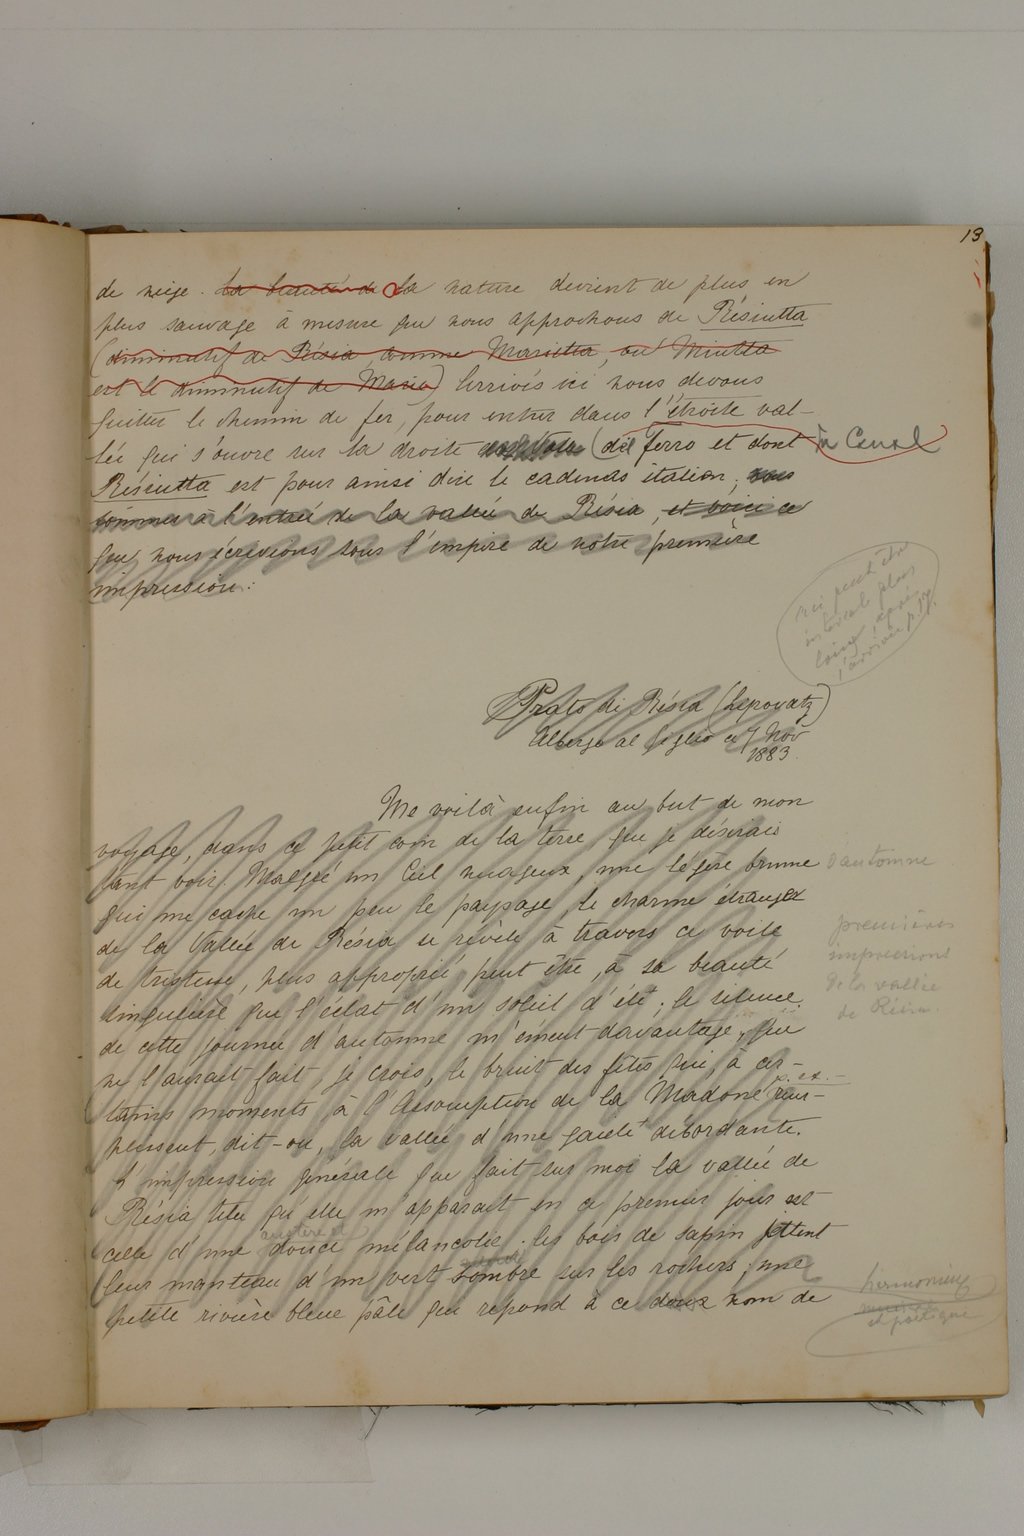 13
de neige. La beauté de La nature devient de plus en
plus sauvage à mesure que nous approchons de Résiutta
(diminutif de Résia comme Marietta, ou Miutta
est le diminutif de Maria) Arrivés ici nous devons
quitter le chemin de fer, pour entrer dans l'étroite val-
lée qui s'ouvre sur la droite (del ferro et dont
in Canal
Résiutta est pour ainsi dire le cadenas italien; nous
sommes à l'entrée de la vallée de Résia, et voici ce
que nous écrivions sous l'empire de notre première
impression:
ceci peut être
intercalé plus
loin, après
l'arrivée p. 17.
Prato di Résia (Lepovatz)
Albergo al Giglio ce 7 Nov
1883.
Me voilà enfin au but de mon
voyage, dans ce petit coin de la terre que je désirais
tant voir. Malgré un Ciel nuageux, une légère brume
d'automne
qui me cache un peu le paysage, le charme étrange
de la Vallée de Résia se révèle à travers ce voile
premières
impressions
de la vallée
de Résia.
de tristesse, plus approprié, peut être, à sa beauté
singulière que l'éclat d'un soleil d'été; le silence
de cette journée d'automne m'émeut davantage, que
ne l'aurait fait, je crois, le bruit des fêtes qui, à cer-
tains moments à l'Assomption de la Madone p. ex. rem-
plissent, dit-on, la vallée d'une gaieté débordante.
L'impression générale que fait sur moi la vallée de
Résia telle qu'elle m'apparait en ce premier jour est
celle d'une austère et douce mélancolie. les bois de sapin jettent
leur manteau d'un vert sombre sur les rochers; une
petite rivière bleue pâle qui répond à ce doux nom de
harmonieux
et poétique